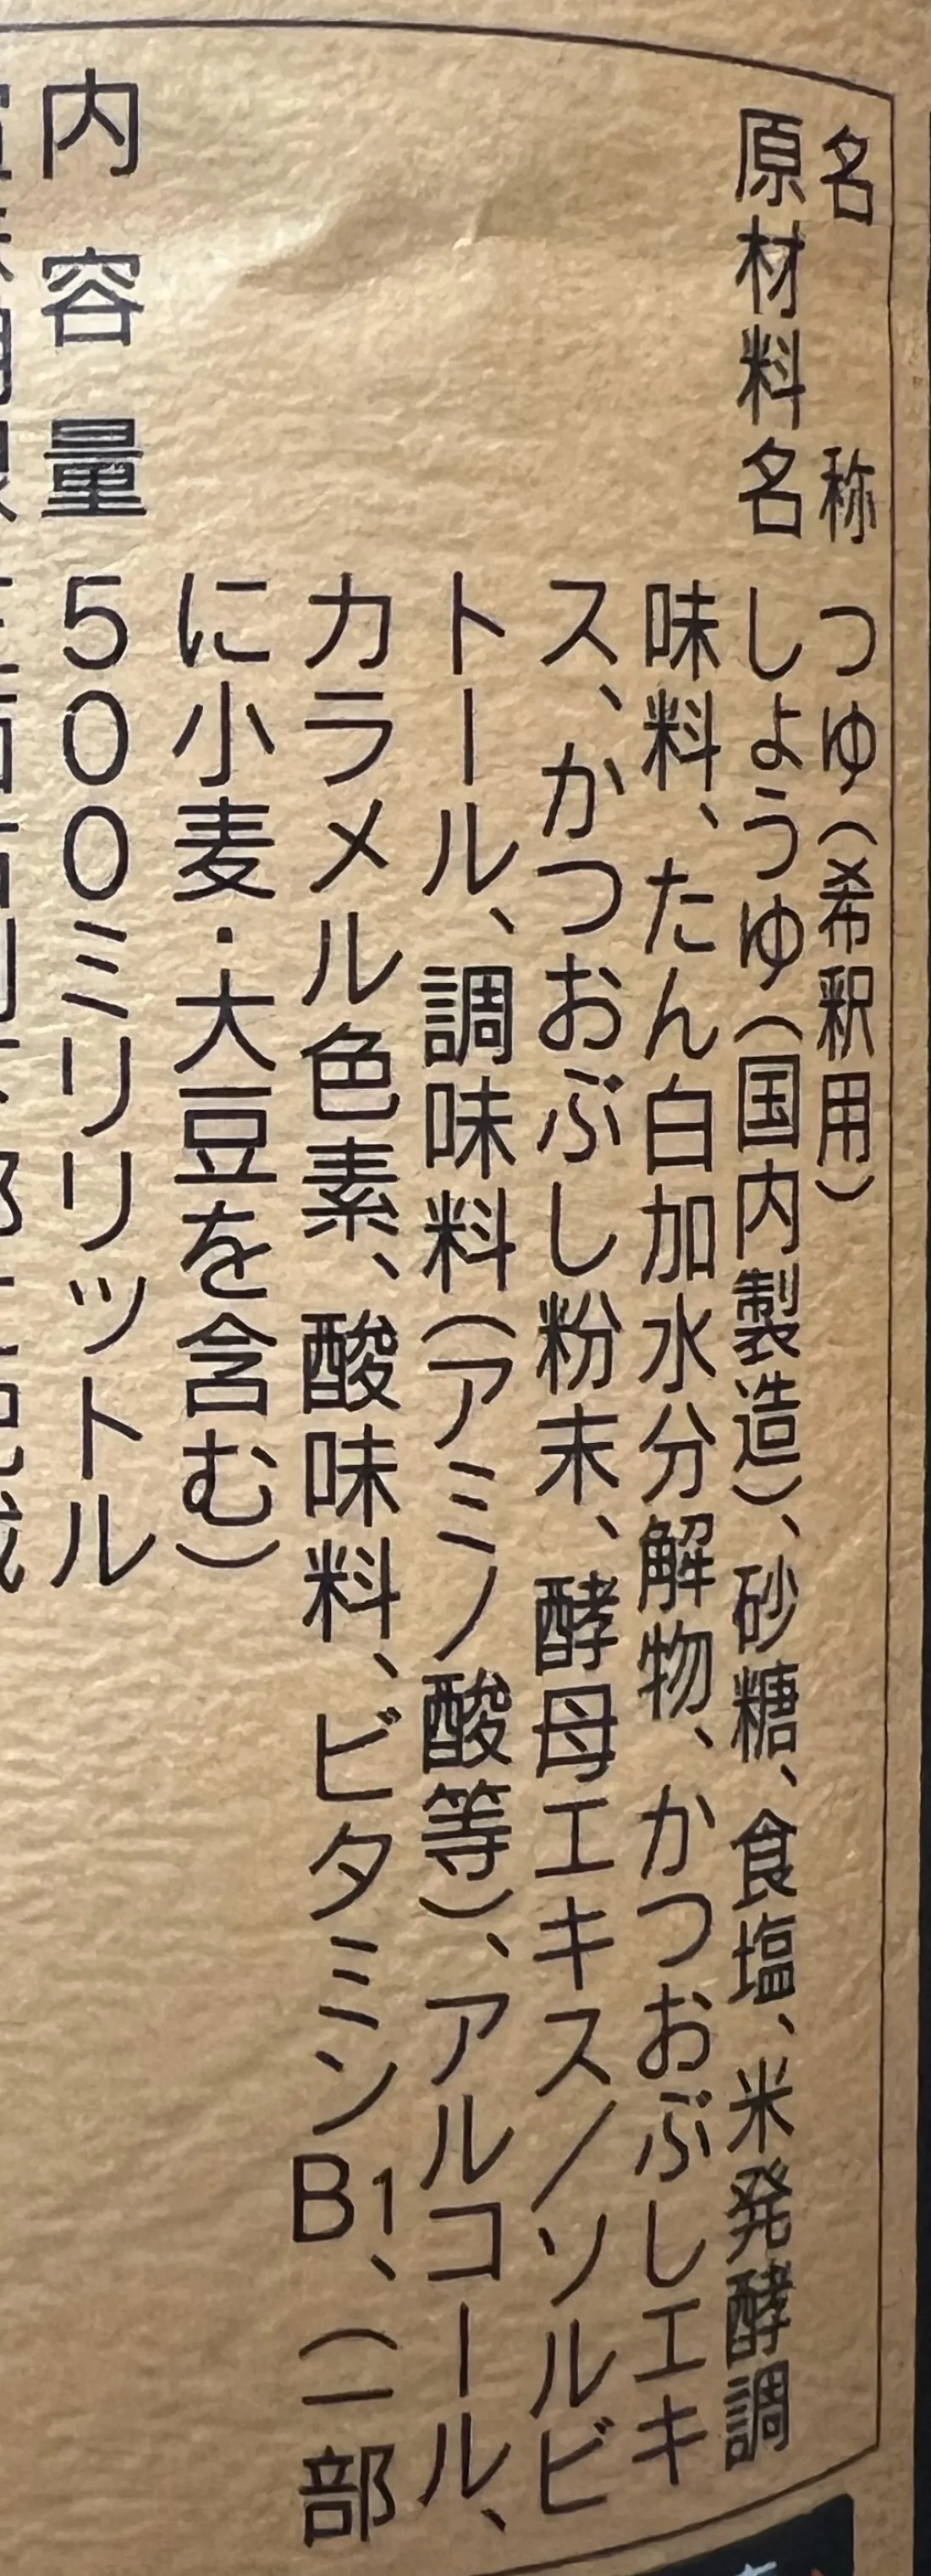 名称 つゆ(希釈用)
原材料名 しょうゆ(国内製造)、砂糖、食塩、米発酵調
味料、たん白加水分解物、かつおぶしエキ
ス、かつおぶし粉末、酵母エキス/ソルビ
トール、調味料(アミノ酸等)、アルコール、
カラメル色素、酸味料、ビタミンB1、(一部
に小麦・大豆を含む)
内容量 500ミリリットル